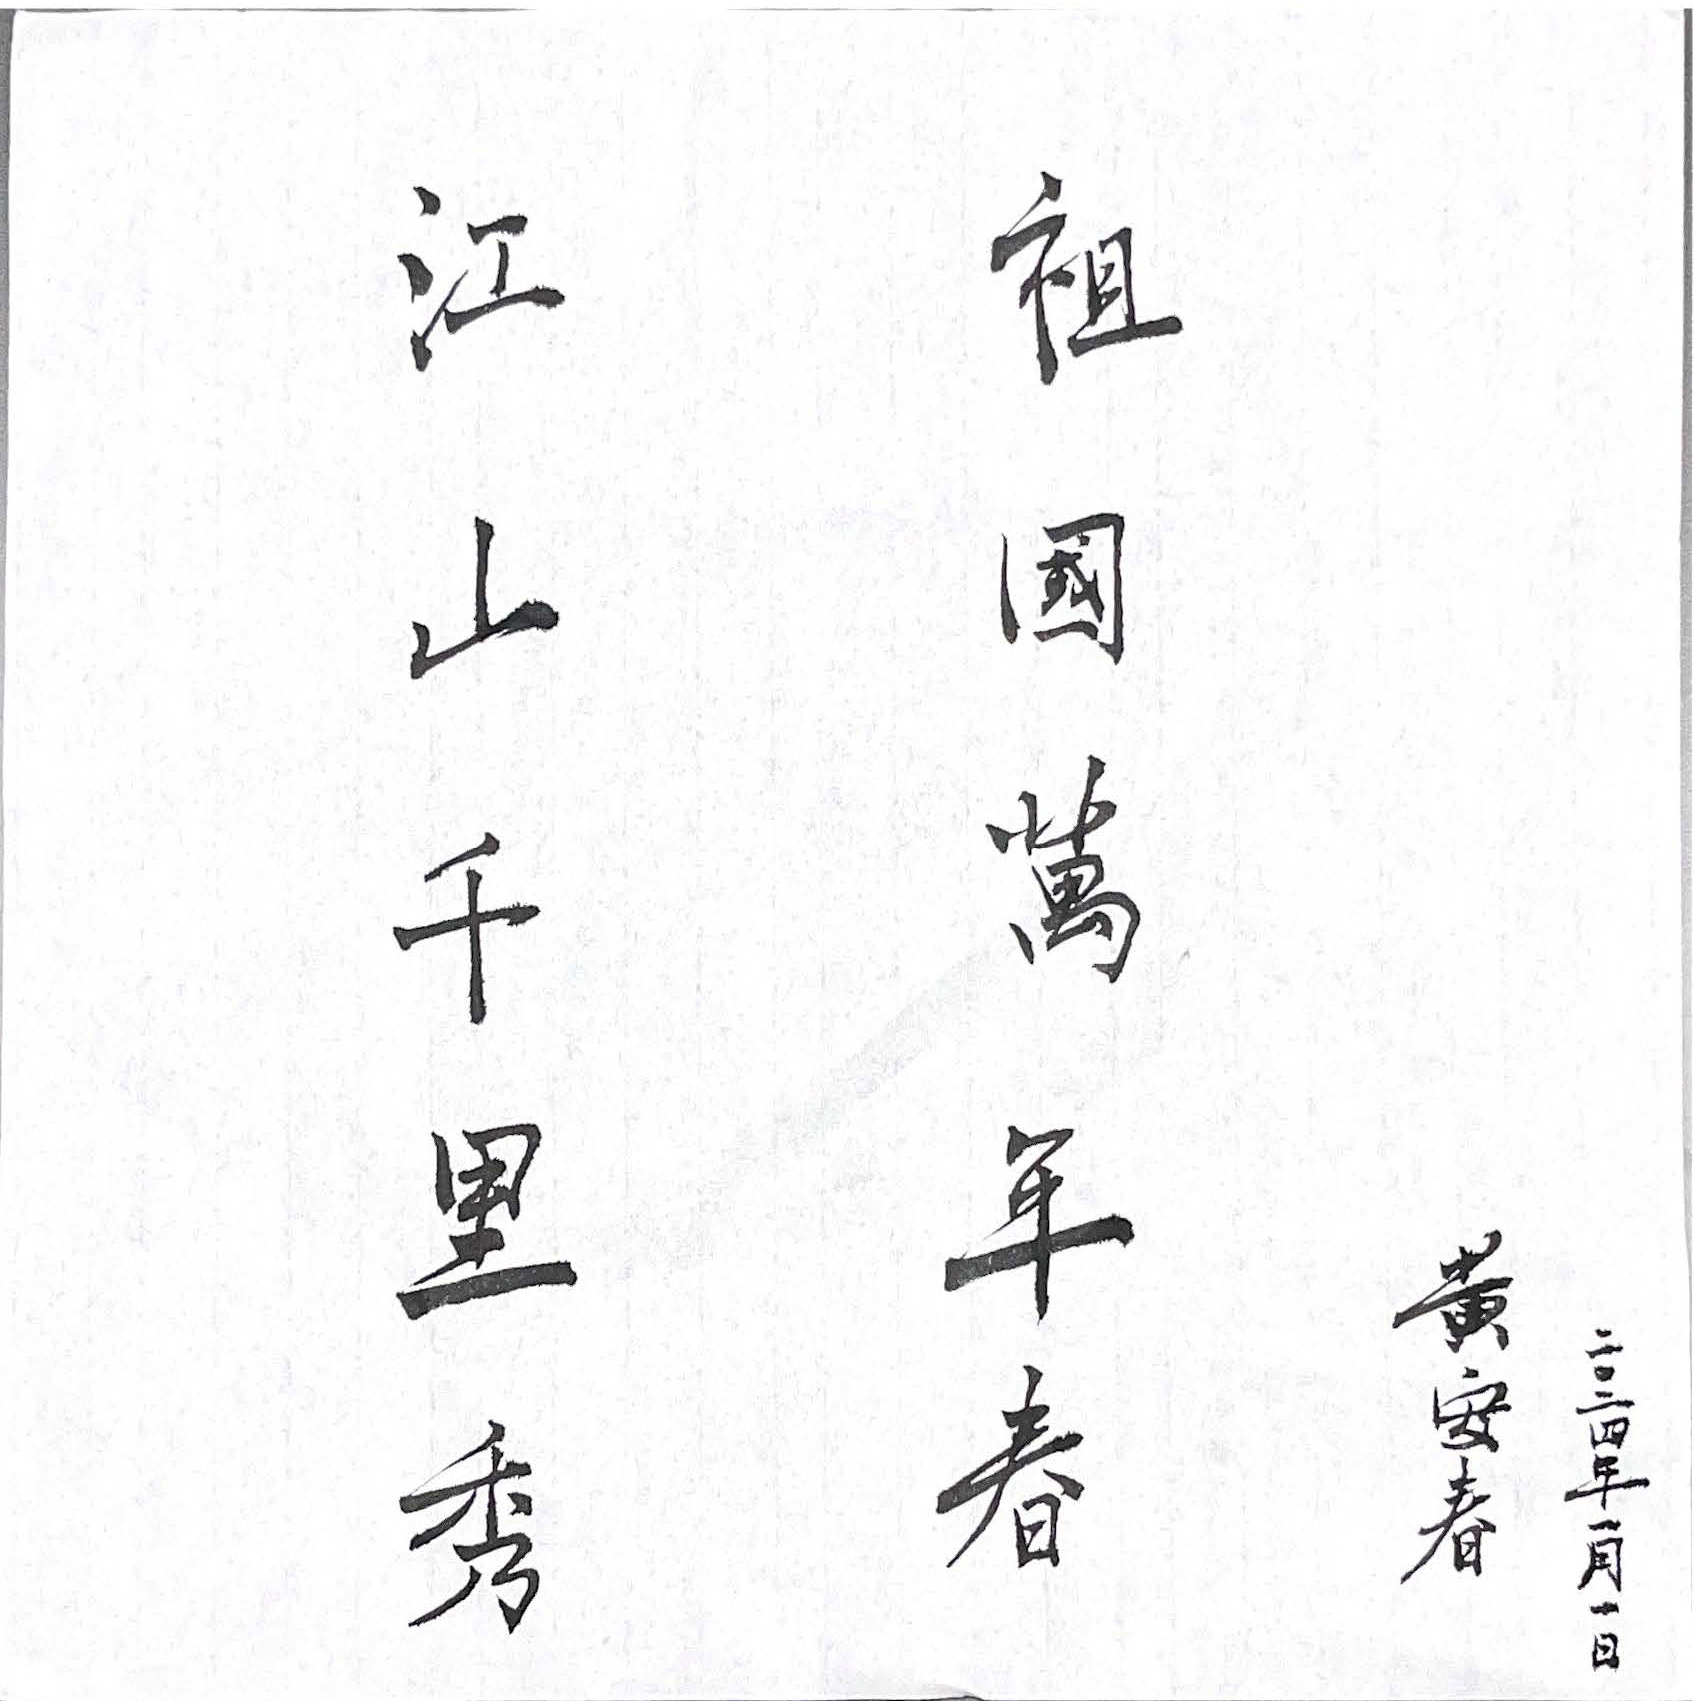 二〇二四年一月一日
黄安春
祖國萬年春
江山千里秀